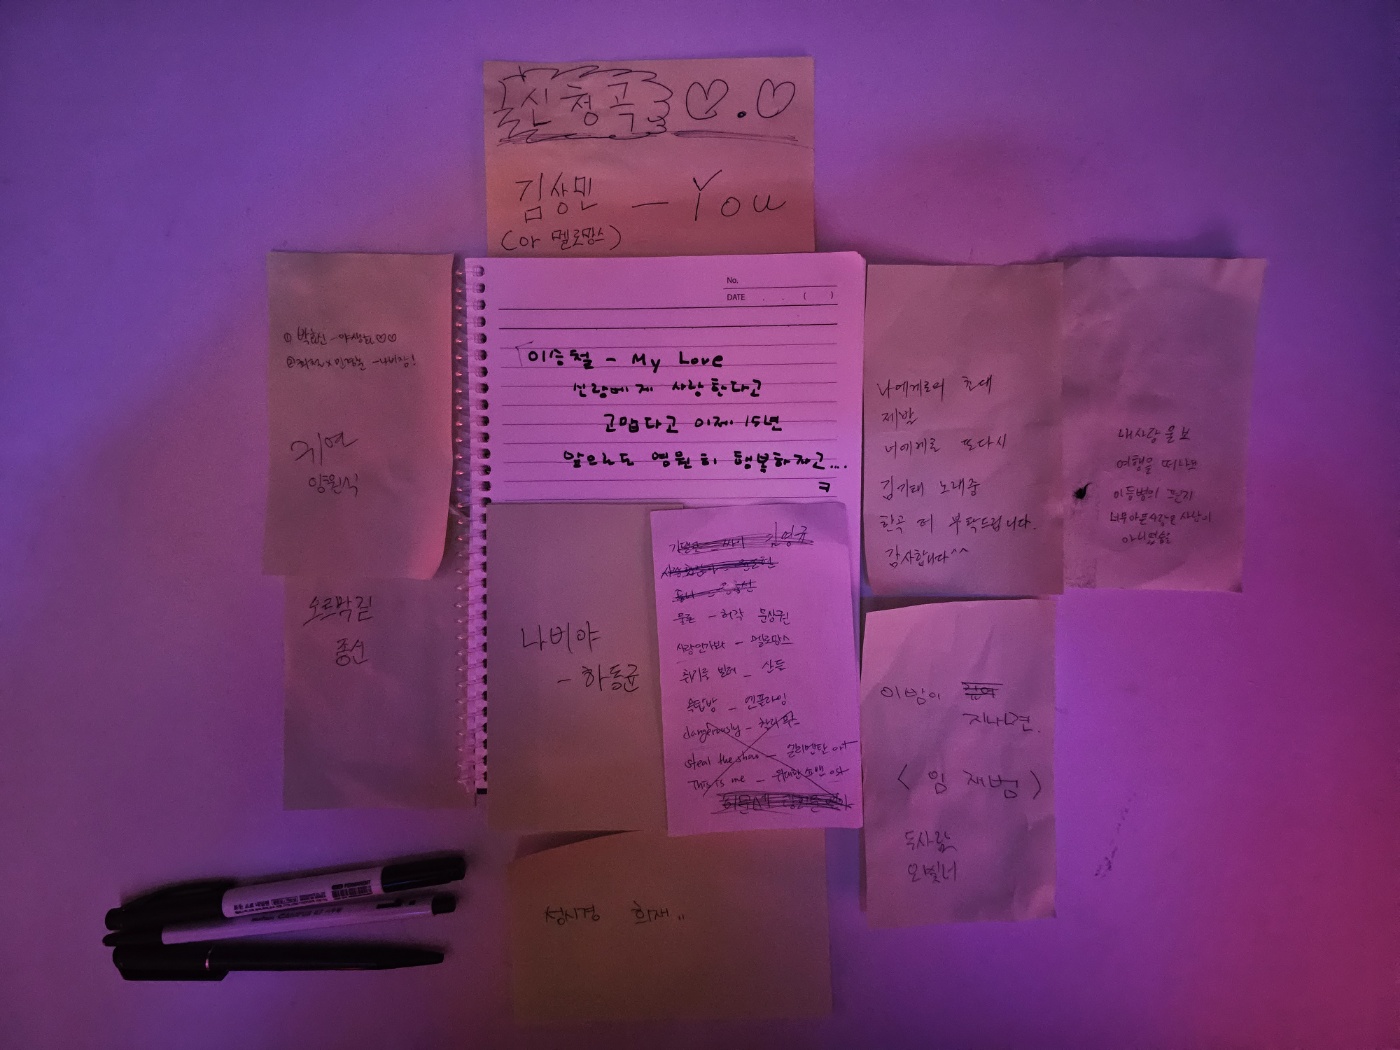 신청곡 ♡.♡
김상민 — You
(of 멜로망스)
① 박효신 - 야생화 ♡♡
귀여
임한식
오르막길
종신
No.
DATE . . ( )
이승철 - My Love
신랑에게 사랑한다고
고맙다고 이제 15년
앞으로도 영원히 행복하자고...
나비야
- 하동균
김영균
물론 - 허각 문상권
사랑인가봐 - 멜로망스
취기를 빌려 - 산들
옥탑방 - 엔플라잉
dangerously - 찰리푸스
steal the show - 엘리멘탈 ost
This is me - 위대한 쇼맨 ost
나에게로의 초대
제발
너에게로 또다시
김기태 노래중
한곡 더 부탁드립니다.
감사합니다^^
내사랑 울보
여행을 떠나요
이등병의 편지
너무아픈사랑은 사랑이
아니었음을
이밤이
지나면.
< 임 재범 >
독사람
오빛너
성시경 희재..